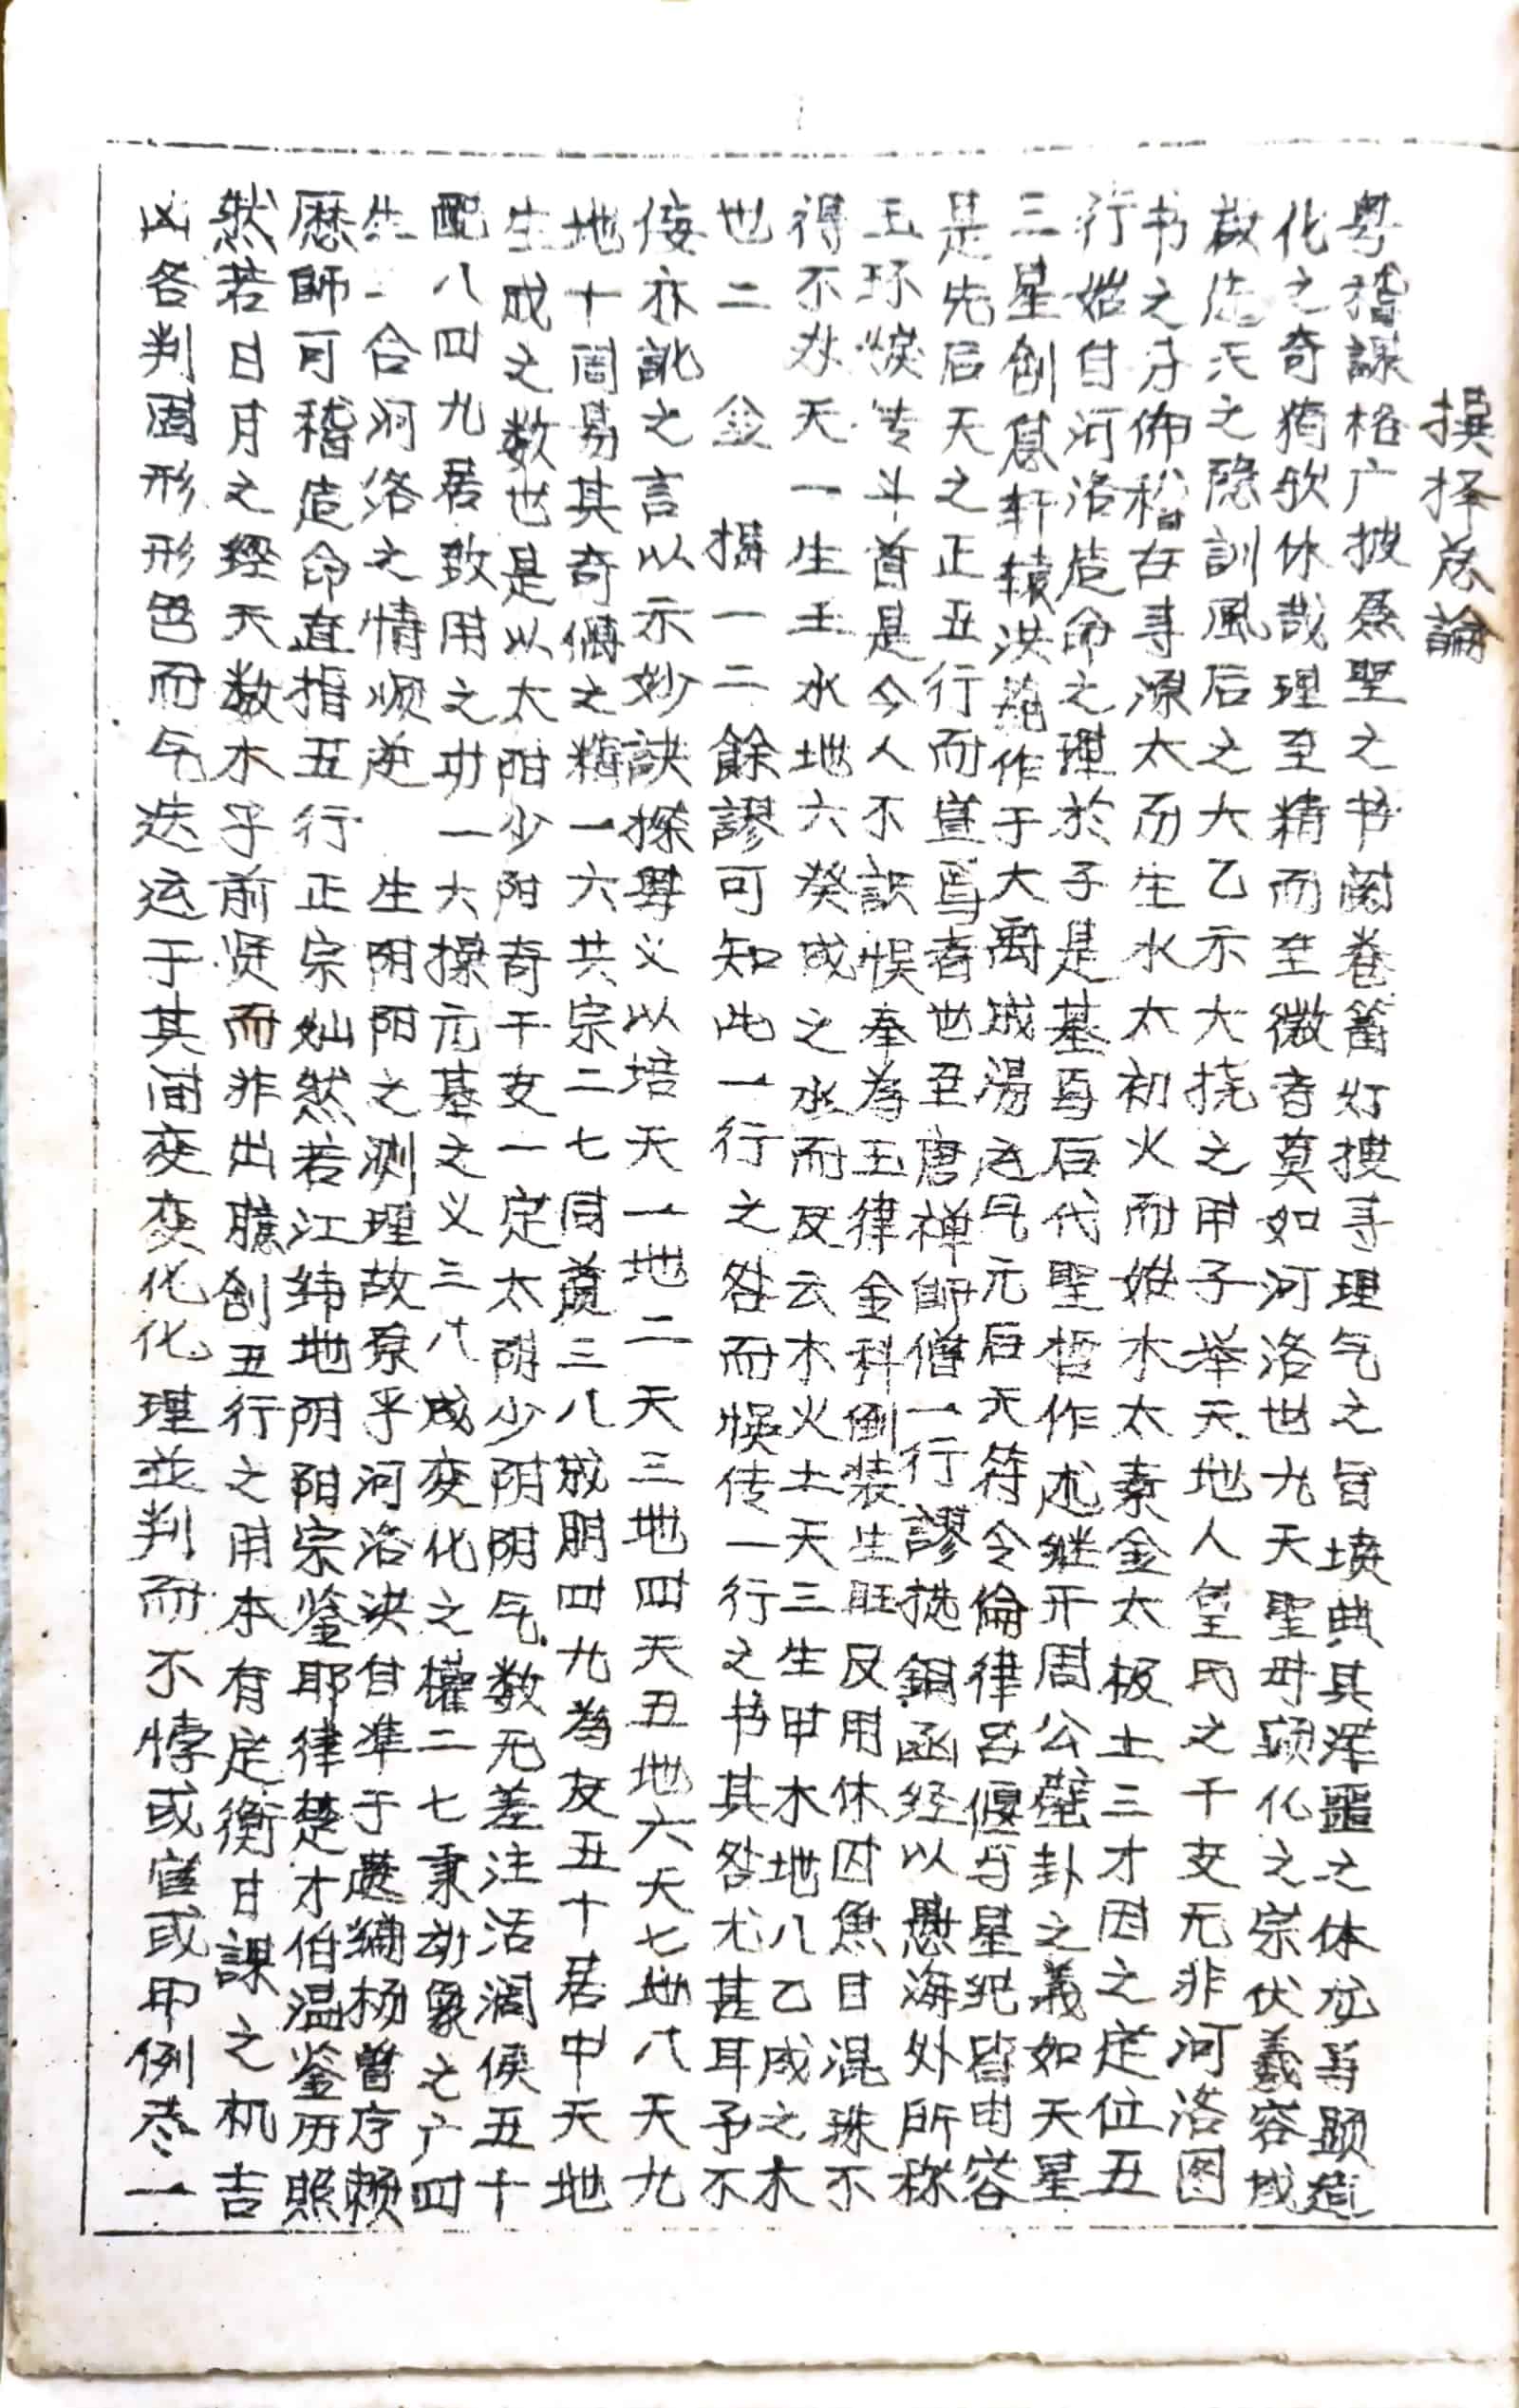 撰择总論
粤稽謀格广披羲聖之书阅卷篝灯搜寻理气之旨墳典其浑噩之休光等題造
化之奇猗欤休哉理至精而至微者莫如河洛世九天聖毋顕化之宗伏羲容成
啟先天之隐訓風后之大乙示大撓之甲子举天地人皇氏之干支无非河洛图
书之分佈稽古寻源太而生水太初火而始木太素金太极土三才因之定位五
行始自河洛造命之理於子是基焉后代聖哲作述继开周公蓝卦之義如天星
三星创息轩辕洪范作于大禹成湯之气元后无符令倫律吕偃与星纪皆由容
是先后天之正五行而宣焉者也丑唐禅師僧一行謬挑銅函经以愚海外所称
玉环燬传斗首是今人不識悮奉為玉律金科倒裝生旺反用休囚魚目混珠不
得不水天一生壬水地六癸成之水而反云木火土天三生甲木地八乙成之木
也二金摳一二餘謬可知此一行之咎而悮传一行之书其咎尤甚耳予不
侫亦訛之言以示妙訣探羣义以培天一地二天三地四天五地六天七地八天九
地十周易其奇偶之精一六共宗二七同道三八成朋四九為友五十居中天地
生成之数也是以太阳少阳奇干支一定太阴少阴阴气数无差注活濶侯五十
配八四九居致用之功一六操元基之义三八成变化之權二七秉动象之广四
生一合河洛之情顺逆生阴阳之测理故原乎河洛洪自準于歷編杨曾序赖
歷師可稽造命直指五行正宗灿然若江纬地阴阳宗鉴耶律楚才伯温鉴历照
然若日月之經天数木子前贤而非出臆创五行之用本有定衡日課之机吉
凶各判圆形形色而气迭运于其间变变化化理並判而不悖或官或印例尽一